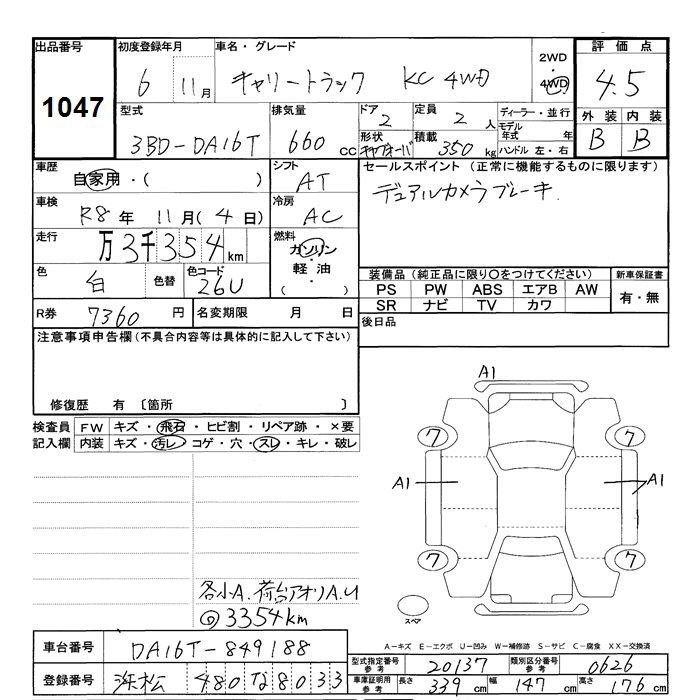 出品番号 初度登録年月 車名・グレード 2WD 評価点
1047 6 11月 キャリートラック KC 4WD 4WD 4.5
型式 排気量 ドア 定員 ディーラー・並行 外装 内装
3BD-DA16T 660cc 2 2人 モデル年式 年 B B
形状 積載 350kg ハンドル 左・右
車歴 シフト セールスポイント(正常に機能するものに限ります)
自家用・( ) AT デュアルカメラブレーキ
車検 冷房
R8年 11月(4日) AC
走行 燃料
万3千354km ガソリン・
軽油
( )
色 白 色替 色コード 26U
装備品(純正品に限り○をつけてください) 新車保証書
PS PW ABS エアB AW 有・無
SR ナビ TV カワ
R券 7360円 名変期限 月 日 後日品
注意事項申告欄(不具合内容等は具体的に記入して下さい)
修復歴 有 〔箇所 〕
検査員 FW キズ・飛石・ヒビ割・リペア跡・×要
記入欄 内装 キズ・汚レ・コゲ・穴・スレ・キレ・破レ
A1
7 7
A1 A1
7 7
各小A.荷台アオリA.U
3354km
スペア
A-キズ E-エクボ U-凹み W-補修跡 S-サビ C-腐食 XX-交換済
車台番号 DA16T-849188
型式指定番号 参考 20137 類別区分番号 参考 0626
登録番号 浜松 480 な 8033
車庫証明用 参考 長さ 339cm 幅 147cm 高さ 176cm